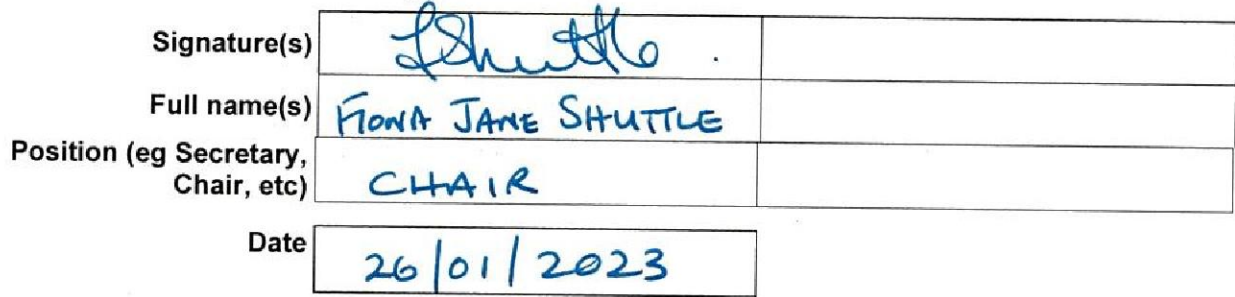 Signature(s) FShuttle.
Full name(s) FIONA JANE SHUTTLE
Position (eg Secretary,
Chair, etc) CHAIR
Date 26/01/2023